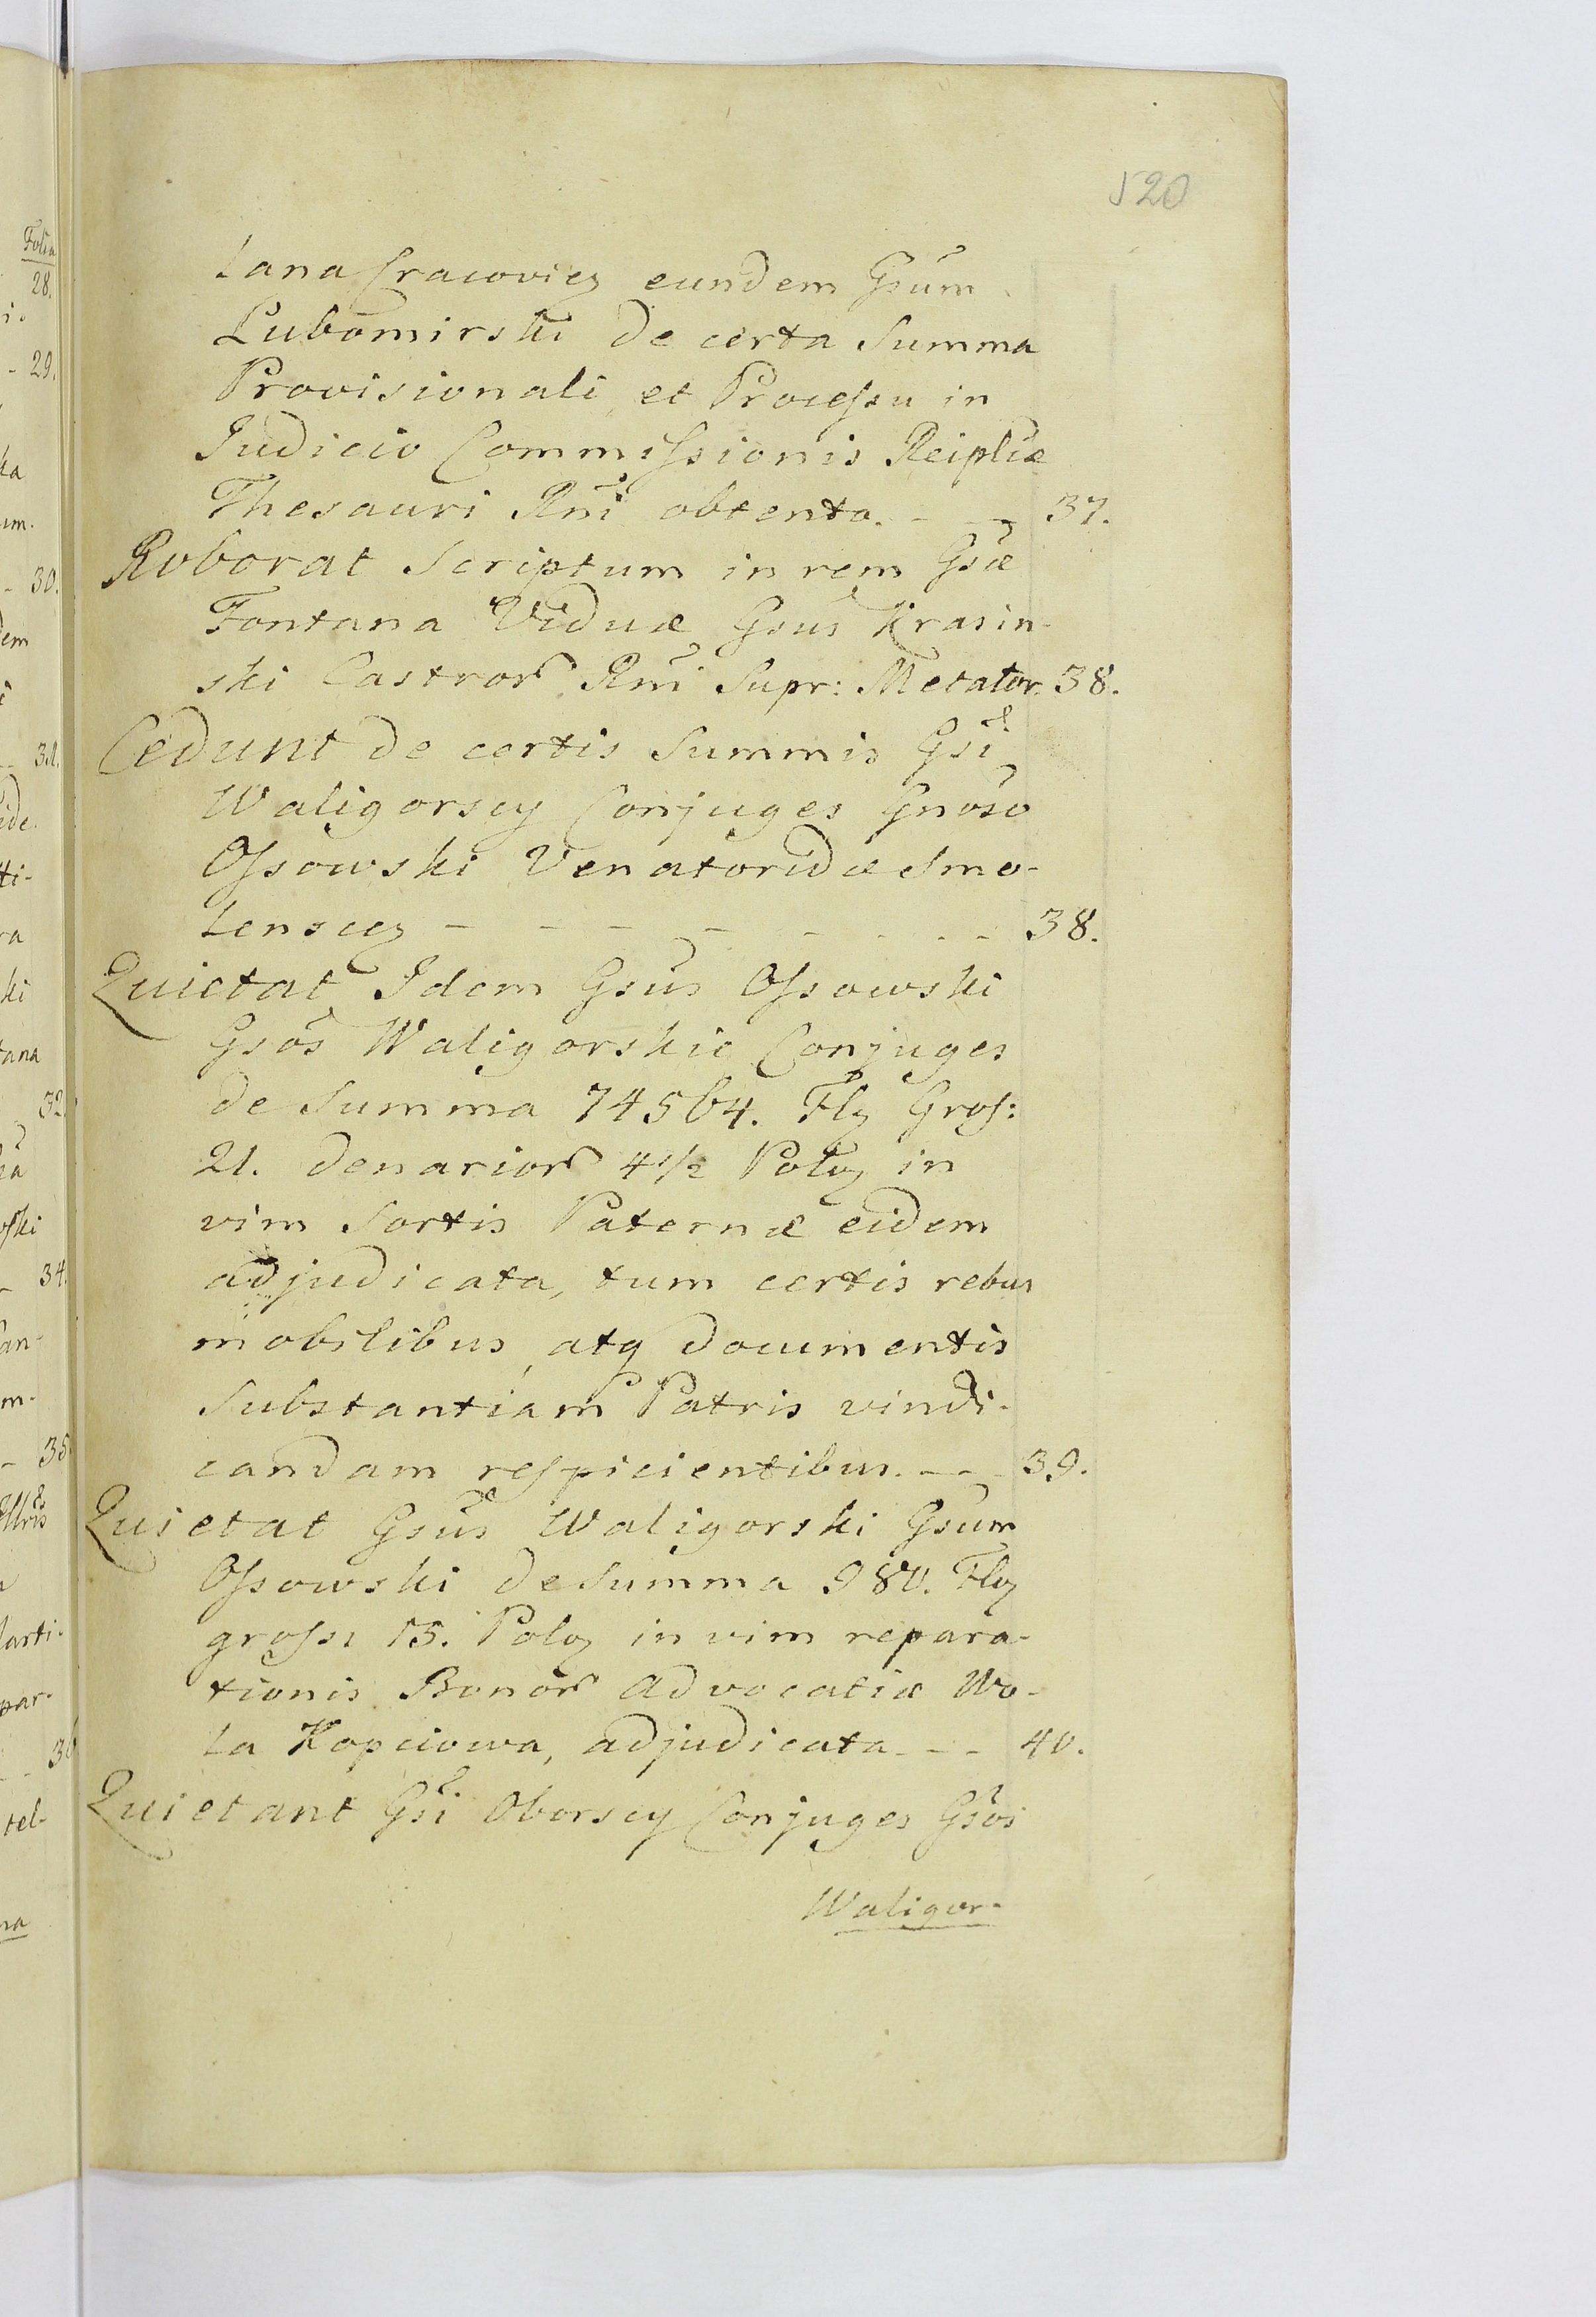 520
lana Cracovieȝ eundem Gsum
Lubomirski de certa Summa
Provisionali et Processu in
Judicio Commissionis Reiplicæ
Thesauri Rni obtento. - - - 37.
Roborat Scriptum in rem Gsæ
Fontana Viduæ Gsus Krasin-
ski Castror Rni Supr: Metator. 38.
Cedunt de certis Summis Gsi
Waligorscy Conjuges Gnoso
Ossowski Venatoridæ Smo-
lensceȝ - - - - - - - - 38.
Quietat Idem Gsus Ossowski
Gsos Waligorskie Conjuges
de Summa 74564. Flȝ Gros:
21. denarior 4 1/2 Polȝ in
vim Sortis Paternæ eidem
adjudicata, tum certis rebus
mobilibus, atq documentis
Substantiam Patris vindi-
candam respicientibus. - - - 39.
Quietat Gsus Waligorski Gsum
Ossowski de Summa 980. Flȝ
grossi 15. Polȝ in vim repara-
tionis Bonor Advocatiæ Wo-
la Kopciowa, adjudicata - - - 40.
Quietant Gsi Oborscy Conjuges Gsos
Waligor-
Folia
28.
29.
30.
31.
32.
34.
35.
36.